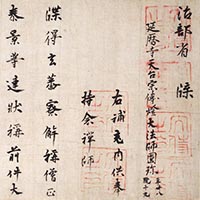 治部省 牒
延暦寺天台宗傳燈大法師圓珎
右補充内供奉
持念禅師
牒得玄蕃寮解稱僧正
泰景等連状稱前件大